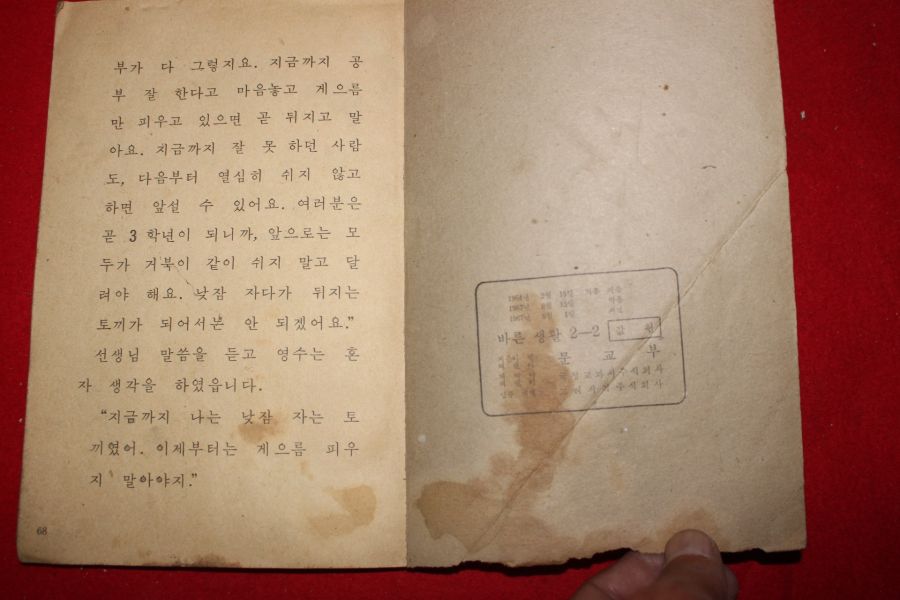 부가 다 그렇지요. 지금까지 공
부 잘 한다고 마음놓고 게으름
만 피우고 있으면 곧 뒤지고 말
아요. 지금까지 잘 못 하던 사람
도, 다음부터 열심히 쉬지 않고
하면 앞설 수 있어요. 여러분은
곧 3 학년이 되니까, 앞으로는 모
두가 거북이 같이 쉬지 말고 달
려야 해요. 낮잠 자다가 뒤지는
토끼가 되어서본 안 되겠어요.”
선생님 말씀을 듣고 영수는 혼
자 생각을 하였읍니다.
“지금까지 나는 낮잠 자는 토
끼였어. 이제부터는 게으름 피우
지 말아야지.”
68
바른 생활 2—2
문 교 부